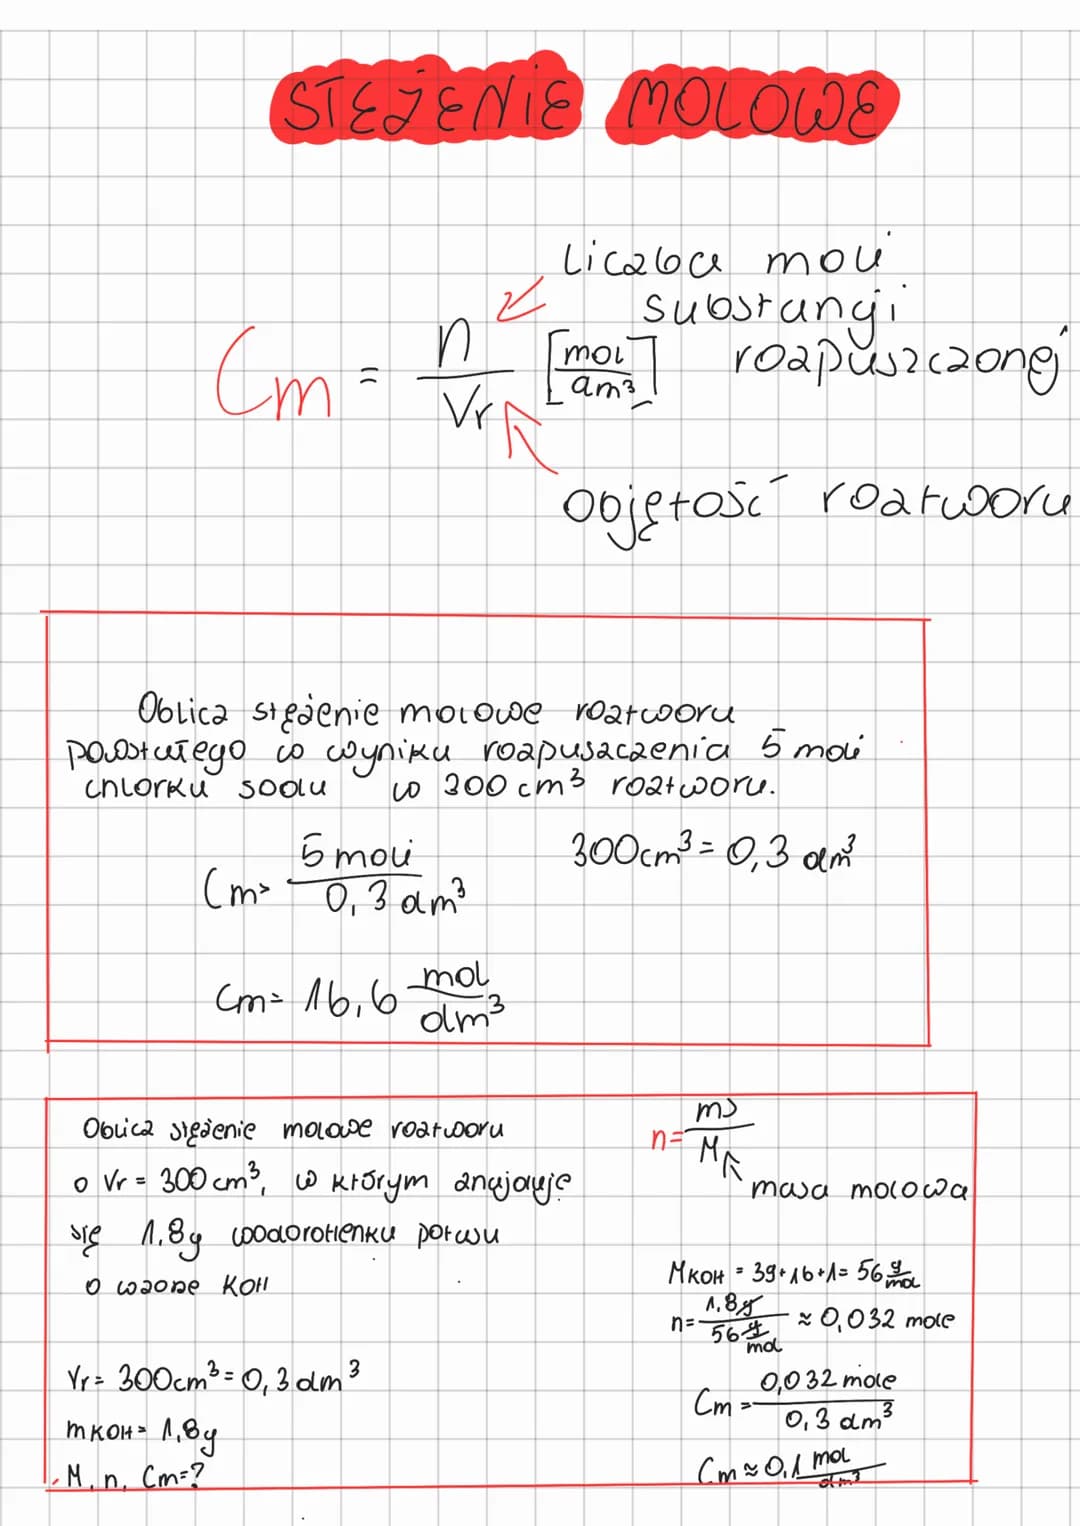 STĘŻENIE MOLOWE
liczba moli
substancji
rozpuszczonej
Cm = n/Vr [mol/dm³]
objętość roztworu
Oblicz stężenie molowe roztworu
powstałego w wyniku rozpuszczenia 5 moli
chlorku sodu w 300 cm³ roztworu.
Cm = 5 moli / 0,3 dm³
300cm³ = 0,3 dm³
Cm = 16,6 mol/dm³
Oblicz stężenie molowe roztworu
o Vr = 300 cm³, w którym znajduje
się 1,8g wodorotlenku potasu
o wzorze KOH
Vr = 300cm³ = 0,3 dm³
mKOH = 1,8g
M, n, Cm = ?
n = ms/M
masa molowa
MKOH = 39+16+1 = 56 g/mol
n = 1,8g / 56 g/mol ≈ 0,032 mole
Cm = 0,032 mole / 0,3 dm³
Cm ≈ 0,1 mol/dm³